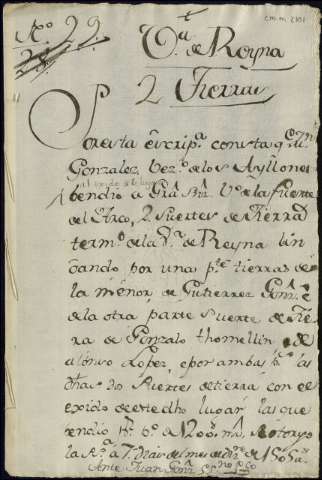 Nº 29.
28.
cm.m. 2101
Vª. de Reyna
2 Tierras
Por esta escripª. consta q
Gonzalez, bezº. de los Ayllones
bendio a Grª. Bº. de la fuente
del Arco, 2 suertes de tierra
termº. de la Vª. de Reyna lin
dando por una pte. tierras de
la menor, de Gutierrez Gonz
de la otra parte suerte de tie
rra de Gonzalo thomellin, de
alonso Lopez, e por ambas las
dhas dos suertes de tierra con el
exido de este dho lugar, las que
vendio de 1200 m. otorgo
la a 7 dias del mes de de 1505ª.
Ante Juan Gonz